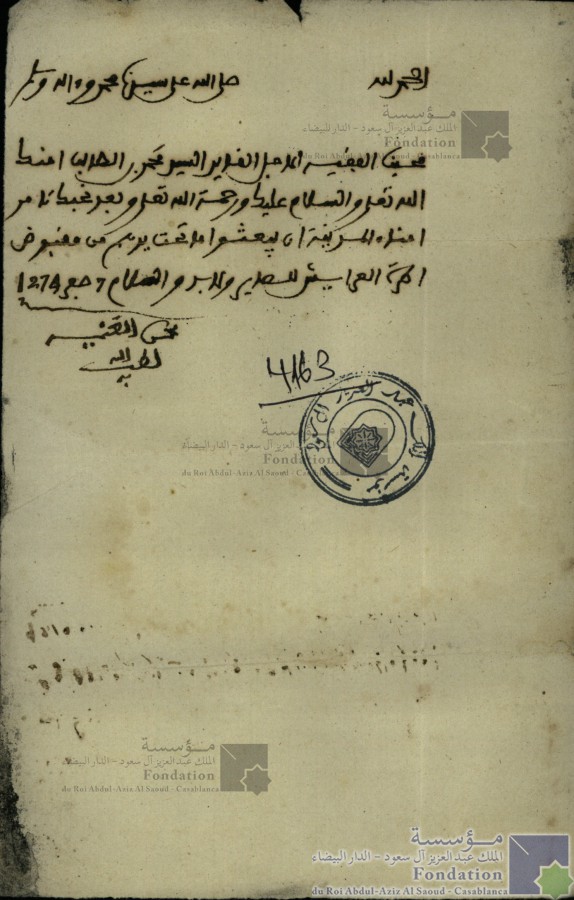 الحمد لله
صلى الله على سيدنا محمد وءاله وسلم
محبنا الفقيه الأجل القايد السيد محمد بن الطالب امنك
الله تعلى والسلام عليك ورحمة الله تعلى وبعد نحبك تامر
امناء المرسى ان يبعثوا ما تحت يديهم من مقبوض
العرايش ولا بد والسلام 7 رجب 1274
لطف الله به
4163
مؤسسة الملك عبد العزيز آل سعود
مؤسسة
الملك عبد العزيز آل سعود - الدار البيضاء
Fondation
du Roi Abdul-Aziz Al Saoud - Casablanca
مؤسسة
الملك عبد العزيز آل سعود - الدار البيضاء
Fondation
du Roi Abdul-Aziz Al Saoud - Casablanca
مؤسسة
الملك عبد العزيز آل سعود - الدار البيضاء
Fondation
du Roi Abdul-Aziz Al Saoud - Casablanca
مؤسسة
الملك عبد العزيز آل سعود - الدار البيضاء
Fondation
du Roi Abdul-Aziz Al Saoud - Casablanca